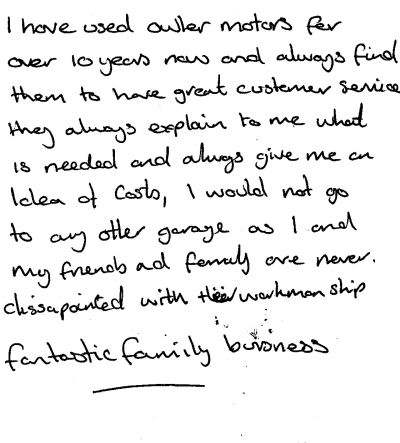 I have used owler motors for
over 10 years now and always find
them to have great customer service
they always explain to me what
is needed and always give me an
Idea of Costs, I would not go
to any other garage as I and
my friends and family are never.
dissapointed with their workmanship
fantastic family business